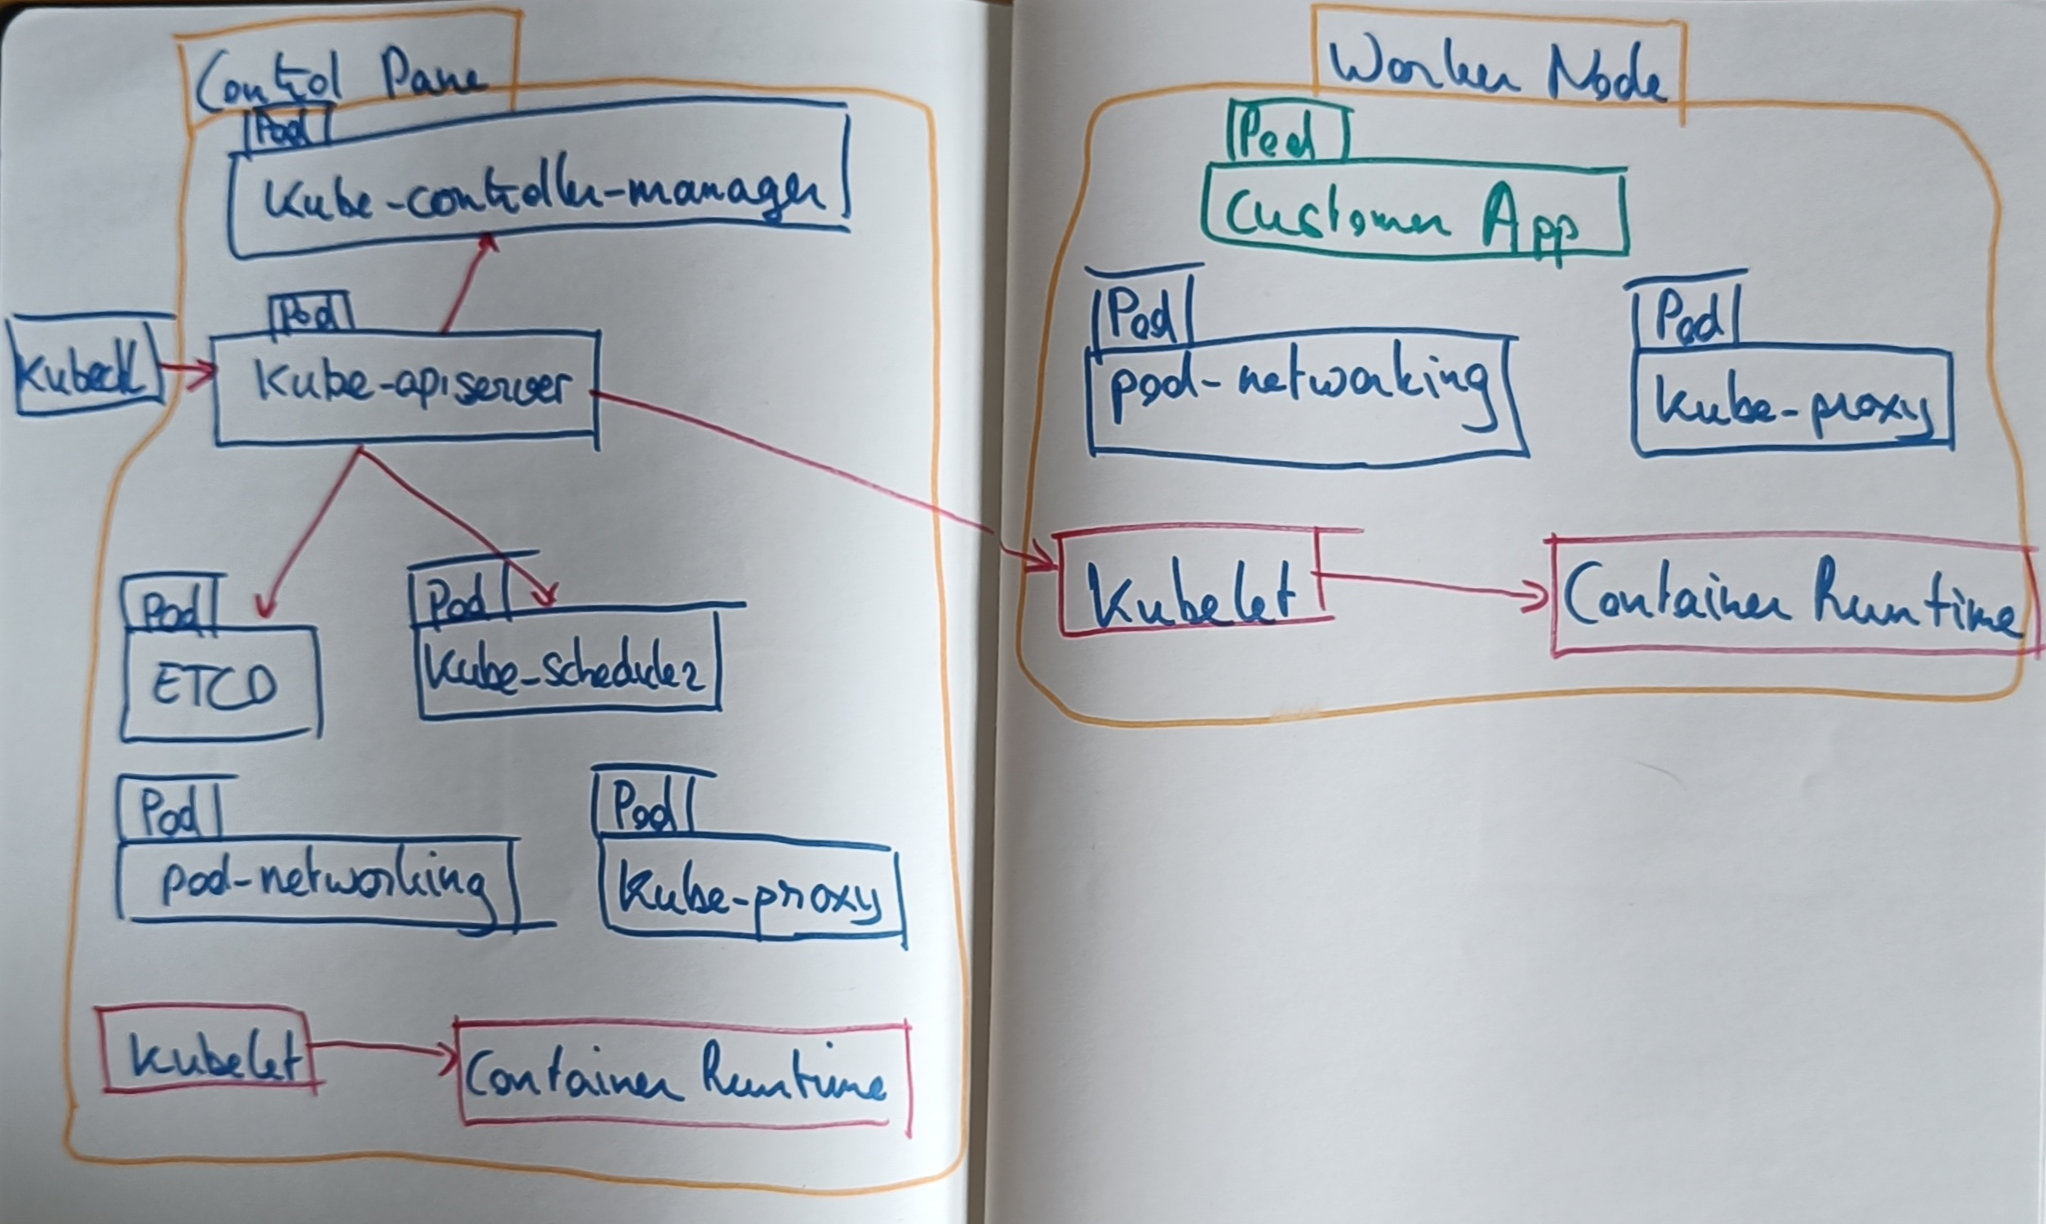 Control Pane
Pod
Kube-controller-manager
Pod
Kubectl
Kube-apiserver
Pod
ETCD
Pod
Kube-scheduler
Pod
pod-networking
Pod
Kube-proxy
Kubelet
Container Runtime
Worker Node
Pod
Customer App
Pod
pod-networking
Pod
Kube-proxy
Kubelet
Container Runtime